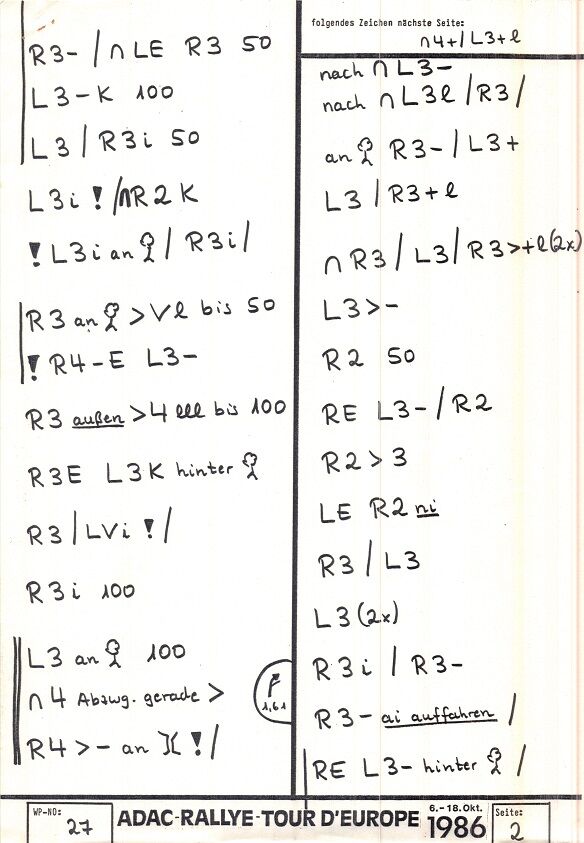 R3- / ∩ LE R3 50
L3-K 100
L3 / R3i 50
L3i ! / ∩R2K
! L3i an / R3i /
R3 an > Vl bis 50
! R4-E L3-
R3 außen > 4 lll bis 100
R3E L3K hinter
R3 / LVi ! /
R3i 100
L3 an 100
∩4 Abzwg. gerade >
R4 > - an ][ ! /
1,61
folgendes Zeichen nächste Seite:
∩4+ / L3+l
nach ∩ L3-
nach ∩ L3l / R3 /
an R3- / L3+
L3 / R3+l
∩ R3 / L3 / R3>+l (2x)
L3>-
R2 50
RE L3- / R2
R2 > 3
LE R2 ni
R3 / L3
L3 (2x)
R3i / R3-
R3- ai auffahren /
RE L3- hinter /
WP-NO: 27
ADAC-RALLYE-TOUR D'EUROPE
6.-18.Okt. 1986
Seite: 2